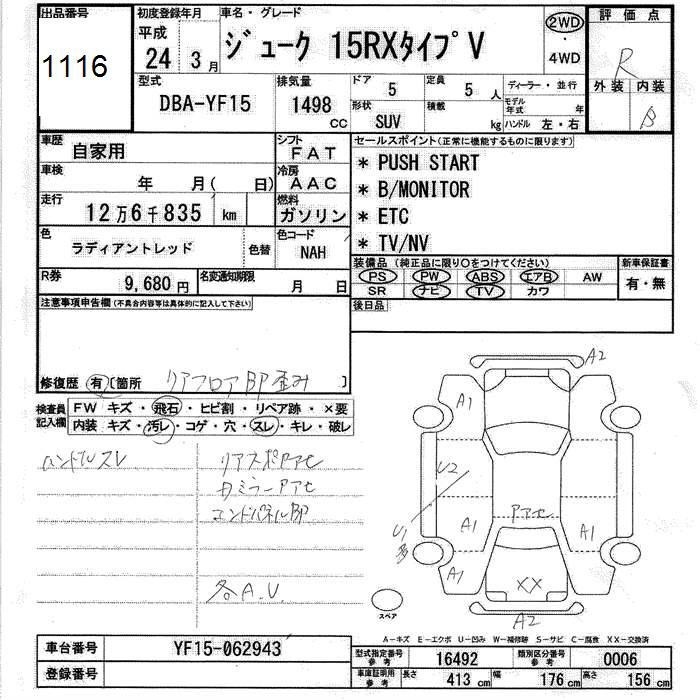 出品番号 1116
初度登録年月 平成 24年 3月
車名・グレード ジューク 15RXタイプV
2WD ・ 4WD
評価点 R
外装 内装 B
型式 DBA-YF15
排気量 1498 CC
ドア 5 定員 5 人
形状 SUV 積載 kg
ディーラー・並行
モデル年式 年
ハンドル 左・右
車歴 自家用
シフト FAT
車検 年 月( 日)
冷房 AAC
走行 12万6千835 km
燃料 ガソリン
色 ラディアントレッド 色替
色コード NAH
R券 9,680円
名変通知期限 月 日
セールスポイント(正常に機能するものに限ります)
* PUSH START
* B/MONITOR
* ETC
* TV/NV
装備品(純正品に限り○をつけてください)
PS PW ABS エアB AW
SR ナビ TV カワ
新車保証書 有・無
後日品
注意事項申告欄(不具合内容等は具体的に記入して下さい)
修復歴 有〔箇所 リアフロア部歪み 〕
検査員記入欄
FW キズ・飛石・ヒビ割・リペア跡・×要
内装 キズ・汚レ・コゲ・穴・スレ・キレ・破レ
ハンドルスレ
リアスポアアセ
エンドパネル部
各A.U.
A2
A1
U2
アアセ
U1
A1 A1
A1
XX
A2
スペア
A-キズ E-エクボ U-凹み W-補修跡 S-サビ C-腐食 XX-交換済
車台番号 YF15-062943
登録番号
型式指定番号 参考 16492 類別区分番号 参考 0006
車庫証明用 参考 長さ 413 cm 幅 176 cm 高さ 156 cm